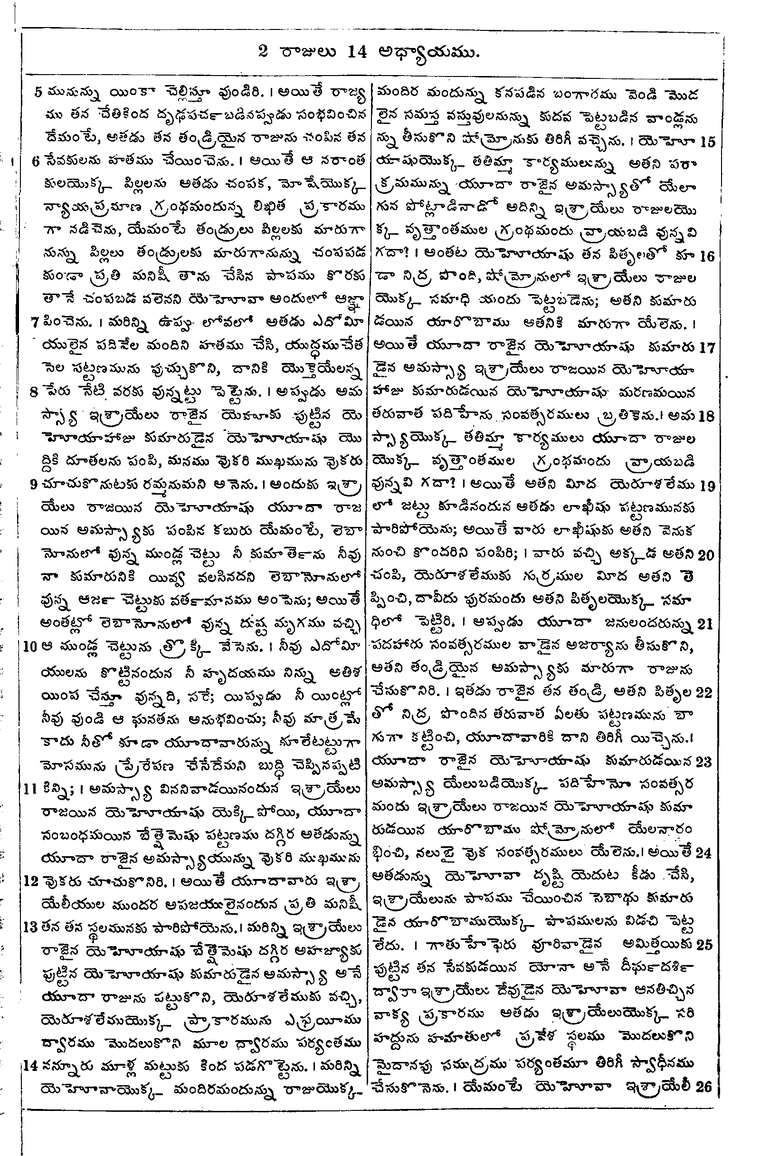 2 రాజులు 14 అధ్యాయము.
5 మునున్ను యింకా చెల్లిస్తూ వుండిరి. । అయితే రాజ్య
ము తన చేతికింద దృఢపర్చబడినప్పుడు సంభవించిన
దేమంటే, అతడు తన తండ్రియైన రాజును చంపిన తన
6 సేవకులను హతము చేయించెను. । అయితే ఆ నరాంత
కులయొక్క పిల్లలను అతడు చంపక, మోషేయొక్క
న్యాయప్రమాణ గ్రంథమందున్న లిఖిత ప్రకారము
గా నడిచెను, యేమంటే తండ్రులు పిల్లలకు మారుగా
నున్ను పిల్లలు తండ్రులకు మారుగానున్ను చంపపడ
కుండా ప్రతి మనిషీ తాను చేసిన పాపము కొరకు
తానే చంపబడ వలెనని యెహోవా అందులో ఆజ్ఞా
7 పించెను. । మరిన్ని ఉప్పు లోవలో అతడు ఎదోమీ
యులైన పదివేల మందిని హతము చేసి, యుద్ధముచేత
సెల పట్టణమును పుచ్చుకొని, దానికి యొక్తెయేలన్న
8 పేరు నేటి వరకు వున్నట్టు పెట్టెను. । అప్పుడు అమ
స్స్యా ఇశ్రాయేలు రాజైన యెహూకు పుట్టిన యె
హోయాహాజు కుమారుడైన యెహోయాషు యొ
ద్దికి దూతలను పంపి, మనము వొకరి ముఖమును వొకరు
9 చూచుకొనుటకు రమ్మనుమని అనెను. । అందుకు ఇశ్రా
యేలు రాజయిన యెహోయాషు యూదా రాజ
యిన అమస్స్యాకు పంపిన కబురు యేమంటే, లెబా
నోనులో వున్న ముండ్ల చెట్టు నీ కుమార్తెను నీవు
నా కుమారునికి యివ్వ వలసినదని లెబానోనులో
వున్న ఆర్జ చెట్టుకు వర్తమానము అంపెను; అయితే
అంతట్లో లెబానోనులో వున్న దుష్ట మృగము వచ్చి
10 ఆ ముండ్ల చెట్టును త్రొక్కి వేసెను. । నీవు ఎదోమీ
యులను కొట్టినందున నీ హృదయము నిన్ను అతిశ
యింప చేస్తూ వున్నది, సరే; యిప్పుడు నీ యింట్లో
నీవు వుండి ఆ ఘనతను అనుభవించు; నీవు మాత్రమే
కాదు నీతో కూడా యూదావారున్ను కూలేటట్టుగా
మోసమును ప్రేరేపణ చేసేదేమని బుద్ధి చెప్పినప్పటి
11 కిన్ని; । అమస్స్యా విననివాడయినందున ఇశ్రాయేలు
రాజయిన యెహోయాషు యెక్కి పోయి, యూదా
సంబంధమయిన బేత్షెమెషు పట్టణము దగ్గిర అతడున్ను
యూదా రాజైన అమస్స్యాయున్ను వొకరి ముఖమును
12 వొకరు చూచుకొనిరి. । అయితే యూదావారు ఇశ్రా
యేలీయుల ముందర అపజయులైనందున ప్రతి మనిషీ
13 తన తన స్థలమునకు పారిపోయెను. । మరిన్ని ఇశ్రాయేలు
రాజైన యెహోయాషు బేత్షెమెషు దగ్గిర అహజ్యాకు
పుట్టిన యెహోయాషు కుమారుడైన అమస్స్యా అనే
యూదా రాజును పట్టుకొని, యెరూశలేముకు వచ్చి,
యెరూశలేముయొక్క ప్రాకారమును ఎఫ్రయీము
ద్వారము మొదలుకొని మూల ద్వారము పర్యంతము
14 నన్నూరు మూళ్ల మట్టుకు కింద పడగొట్టెను. । మరిన్ని
యెహోవాయొక్క మందిరమందున్ను రాజుయొక్క
మందిర మందున్ను కనపడిన బంగారము వెండి మొద
లైన సమస్త వస్తువులనున్ను కుదవ పెట్టబడిన వాండ్లను
న్ను తీసుకొని షోమ్రోనుకు తిరిగీ వచ్చెను. । యెహో 15
యాషుయొక్క తతిమ్మా కార్యములున్ను అతని పరా
క్రమమున్ను యూదా రాజైన అమస్స్యాతో యేలా
గున పోట్లాడినాడో అదిన్ని ఇశ్రాయేలు రాజులయొ
క్క వృత్తాంతముల గ్రంథమందు వ్రాయబడి వున్నవి
గదా? । అంతట యెహోయాషు తన పితృలతో కూ 16
డా నిద్ర పొంది, షోమ్రోనులో ఇశ్రాయేలు రాజుల
యొక్క సమాధి యందు పెట్టబడెను; అతని కుమారు
డయిన యారొబాము అతనికి మారుగా యేలెను. ।
అయితే యూదా రాజైన యెహోయాషు కుమారు 17
డైన అమస్స్యా ఇశ్రాయేలు రాజయిన యెహోయా
హాజు కుమారుడయిన యెహోయాషు మరణమయిన
తరువాత పదిహేను సంవత్సరములు బ్రతికెను. । అమ 18
స్స్యాయొక్క తతిమ్మా కార్యములు యూదా రాజుల
యొక్క వృత్తాంతముల గ్రంథమందు వ్రాయబడి
వున్నవి గదా? । అయితే అతని మీద యెరూశలేము 19
లో జట్టు కూడినందున అతడు లాఖీషు పట్టణమునకు
పారిపోయెను; అయితే వారు లాఖీషుకు అతని వెనుక
నుంచి కొందరిని పంపిరి; । వారు వచ్చి అక్కడ అతని 20
చంపి, యెరూశలేముకు గుర్రముల మీద అతని తె
ప్పించి, దావీదు పురమందు అతని పితృలయొక్క సమా
ధిలో పెట్టిరి. । అప్పుడు యూదా జనులందరున్ను 21
పదహారు సంవత్సరముల వాడైన అజర్యాను తీసుకొని,
అతని తండ్రియైన అమస్స్యాకు మారుగా రాజును
చేసుకొనిరి. । ఇతడు రాజైన తన తండ్రి అతని పితృల 22
తో నిద్ర పొందిన తరువాత ఏలతు పట్టణమును బా
గుగా కట్టించి, యూదావారికి దాని తిరిగీ యిచ్చెను. ।
యూదా రాజైన యెహోయాషు కుమారుడయిన 23
అమస్స్యా యేలుబడియొక్క పదిహేనో సంవత్సర
మందు ఇశ్రాయేలు రాజయిన యెహోయాషు కుమా
రుడయిన యారొబాము షోమ్రోనులో యేలనారం
భించి, నలుభై వొక సంవత్సరములు యేలెను. । అయితే 24
అతడున్ను యెహోవా దృష్టి యెదుట కీడు చేసి,
ఇశ్రాయేలును పాపము చేయించిన నెబాథు కుమారు
డైన యారొబాముయొక్క పాపములను విడచి పెట్ట
లేదు. । గాతుహేఫెరు వూరివాడైన అమిత్తయికు 25
పుట్టిన తన సేవకుడయిన యోనా అనే దీర్ఘదర్శి
ద్వారా ఇశ్రాయేలు దేవుడైన యెహోవా ఆనతిచ్చిన
వాక్య ప్రకారము అతడు ఇశ్రాయేలుయొక్క సరి
హద్దును హమాతులో ప్రవేశ స్థలము మొదలుకొని
మైదానపు సముద్రము పర్యంతమూ తిరిగీ స్వాధీనము
చేసుకొనెను. । యేమంటే యెహోవా ఇశ్రాయేలీ 26